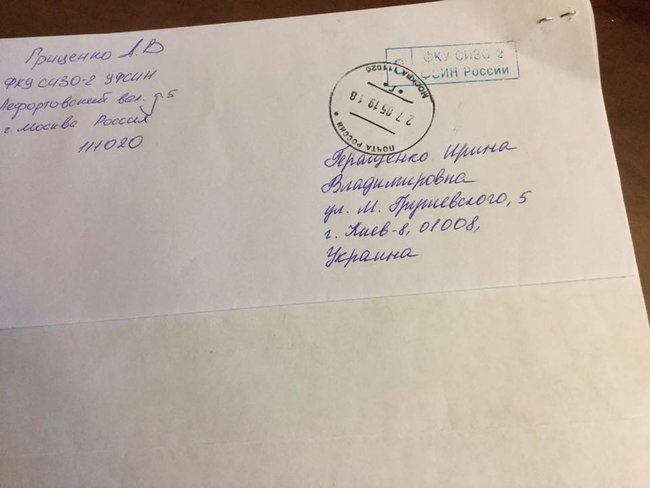 Гриценко А.В
ФКУ СИЗО-2 УФСИН
Лефортовский вал. д.5
г. Москва Россия
111020
ФКУ СИЗО-2
ФСИН России
МОСКВА 111020
27 05 19 18
ПОЧТА РОССИИ
Геращенко Ирина
Владимировна
ул. М. Грушевского, 5
г. Киев-8, 01008,
Украина